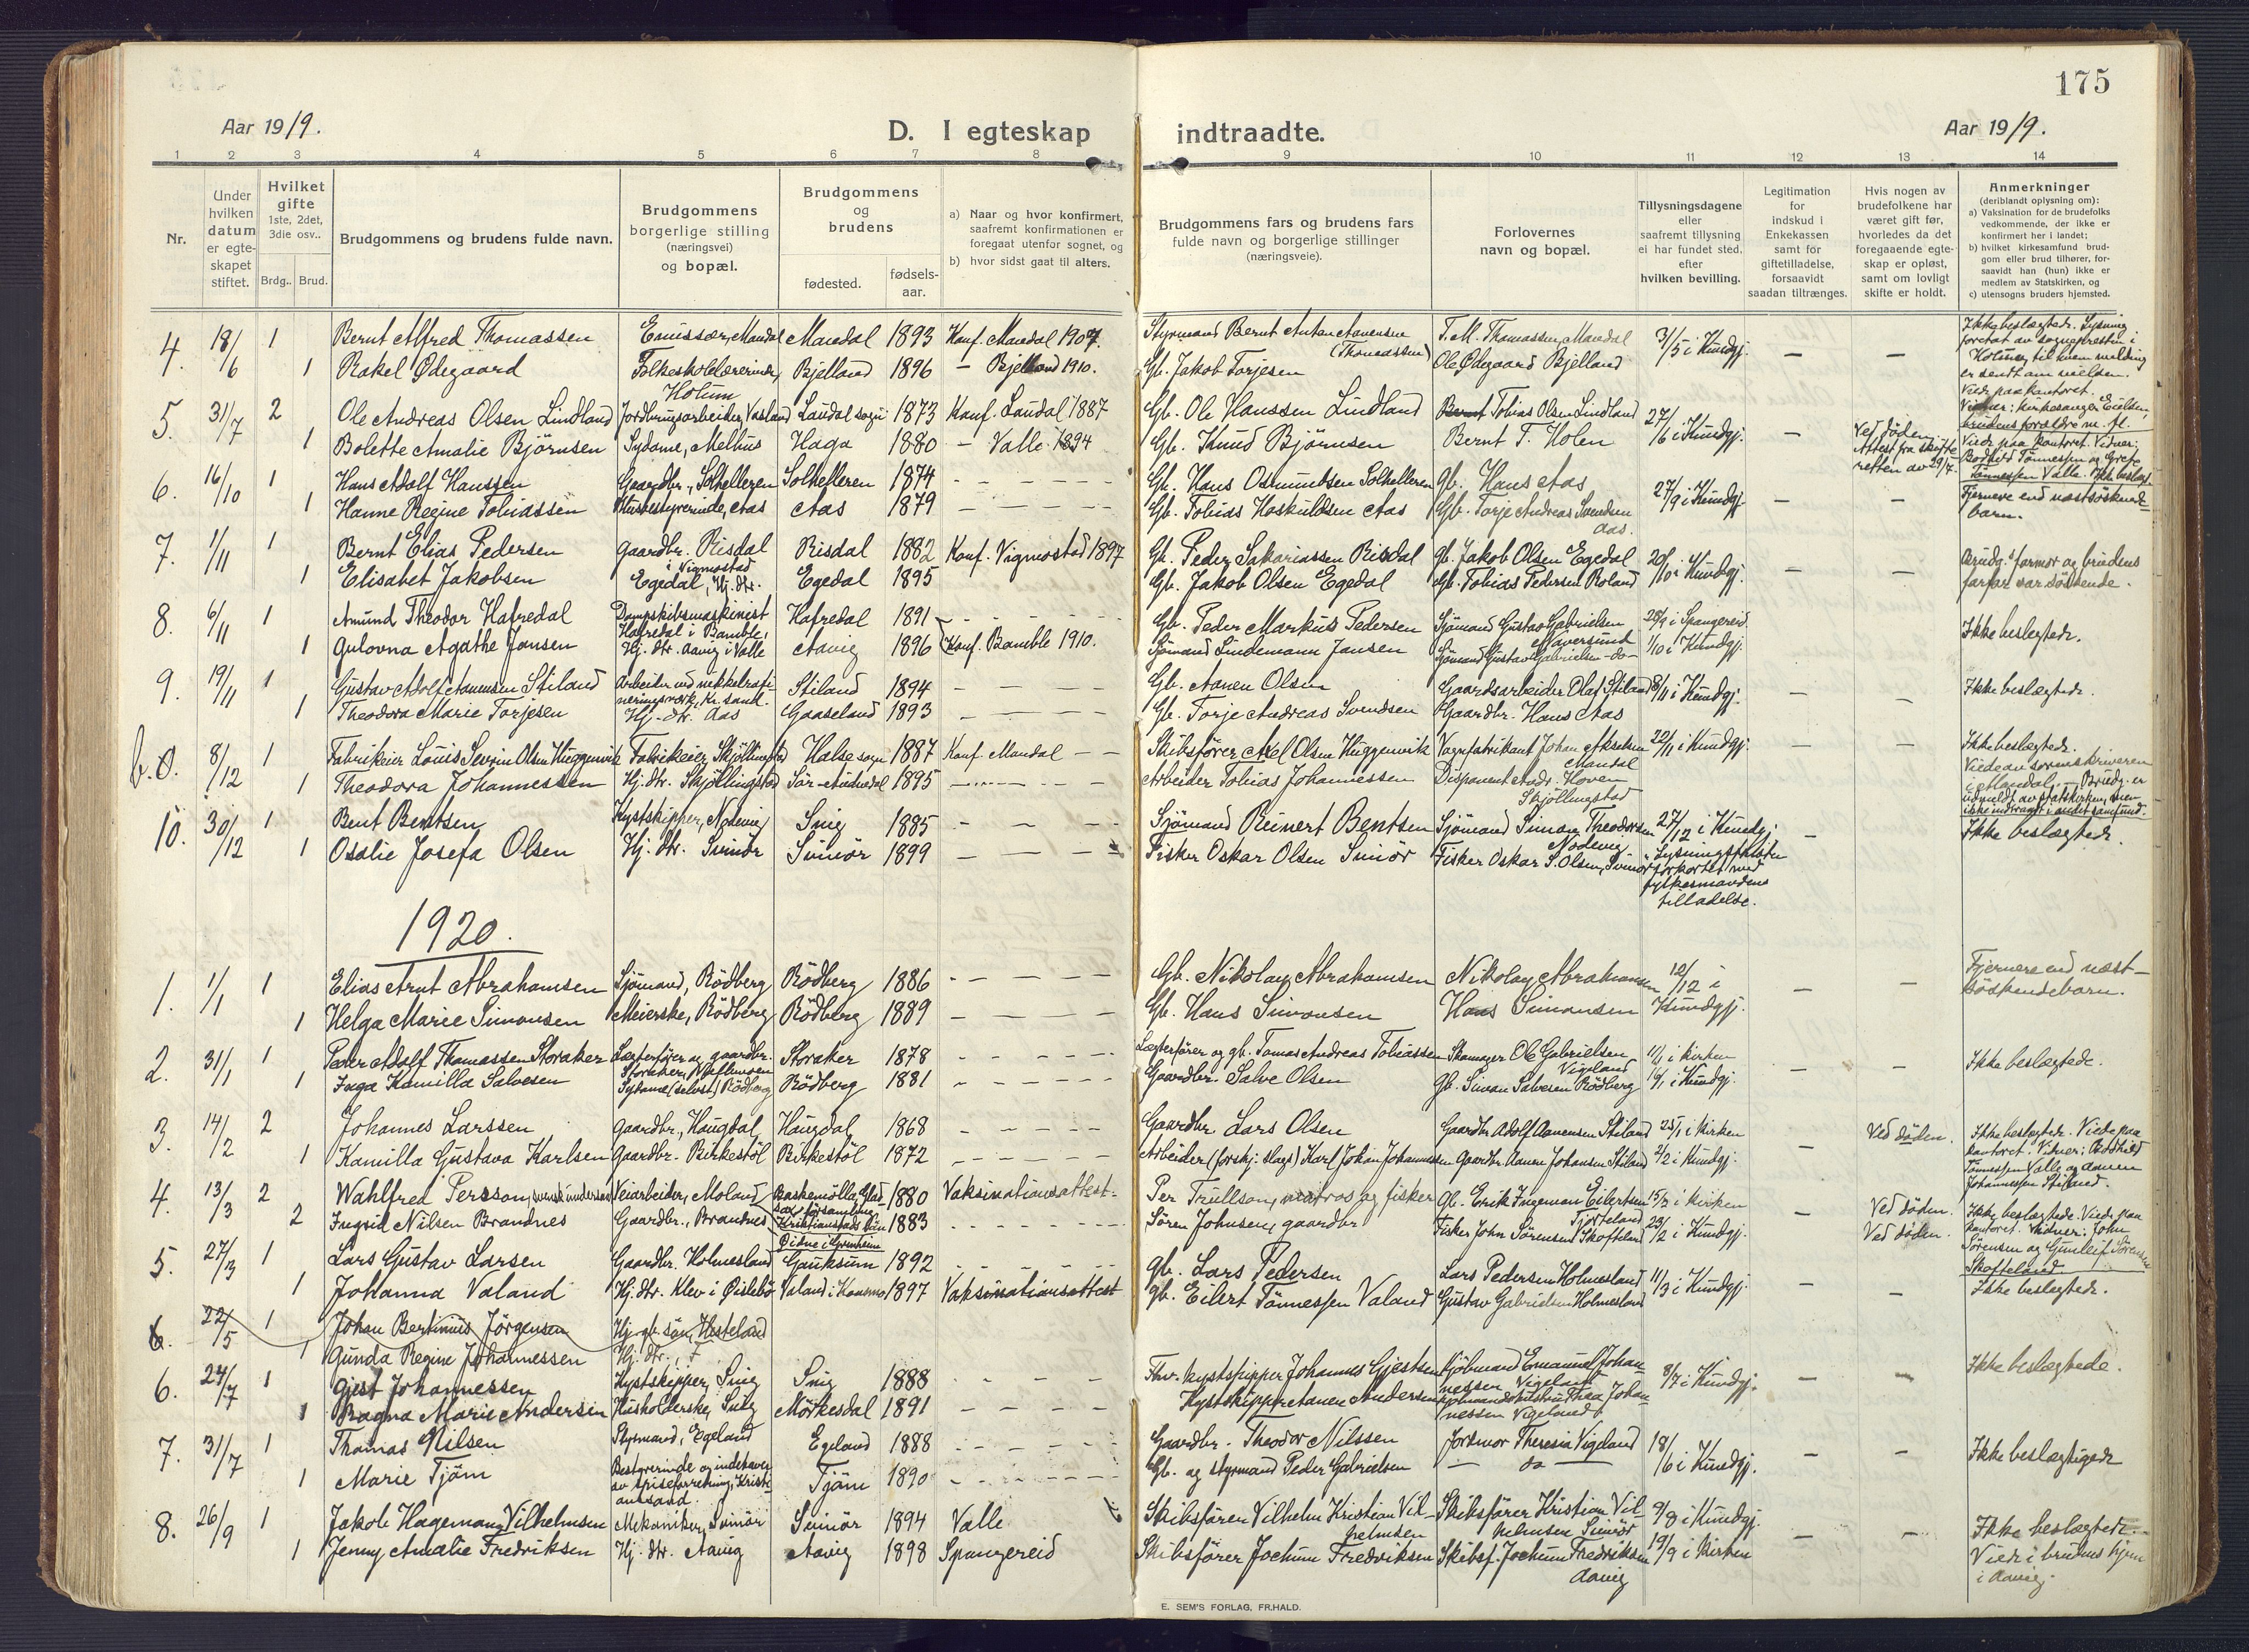 175
Aar 1919.
D. I egteskap indtraadte.
Aar 1919.
1 2 3 4 5 6 7 8 9 10 11 12 13 14
Nr.
Under hvilken datum er egte-skapet stiftet.
Hvilket gifte
1ste, 2det, 3die osv..
Brdg.. Brud.
Brudgommens og brudens fulde navn.
Brudgommens borgerlige stilling (næringsvei) og bopæl.
Brudgommens og brudens
fødested.
fødsels-aar.
a) Naar og hvor konfirmert, saafremt konfirmationen er foregaat utenfor sognet, og
b) hvor sidst gaat til alters.
Brudgommens fars og brudens fars fulde navn og borgerlige stillinger (næringsveie).
Forlovernes navn og bopæl.
Tillysningsdagene eller saafremt tillysning ei har fundet sted, efter hvilken bevilling.
Legitimation for indskud i Enkekassen samt for giftetilladelse, forsaavidt saadan tiltrænges.
Hvis nogen av brudefolkene har været gift før, hvorledes da det foregaaende egte-skap er opløst, samt om lovligt skifte er holdt.
Anmerkninger
(deriblandt oplysning om):
a) Vaksination for de brudefolks vedkommende, der ikke er konfirmert her i landet;
b) hvilket kirkesamfund brud-gom eller brud tilhører, for-saavidt han (hun) ikke er medlem av Statskirken, og
c) utensogns bruders hjemsted.
4. 18/6 1 Bernt Alfred Thomassen Emissær, Mandal Mandal 1893 Konf. Mandal 1907. Styrmand Bernt Anton Aanensen (Thomassen) T. M. Thomassen Mandal 31/5 i Kundgj. — —
1 Rakel Ødegaard Folkeskolelærerinde, Holum Bjelland 1896 — Bjelland 1910. Gb. Jakob Torjesen Ole Ødegaard Bjelland
Ikke beslegtede. Lysning foretat av sognepresten i Holum, til hvem melding er sendt om vielsen.
5. 31/7 2 Ole Andreas Olsen Lindland Jordbrugsarbeider, Vasland Laudal sogn 1873 Konf. Laudal 1887 Gb. Ole Hanssen Lindland Tobias Olsen Lindland 27/6 i Kundgj. —
1 Bolette Amalie Björnsen Sydame, Melhus Haga 1880 — Valle 1894 Gb. Knud Björnsen Bernt T. Holen
Ved döden. Attest fra skifte-retten av 29/7.
Viede paa kontoret. Vidner: kirkesanger Eielsen, brudens forældre m. fl.
6. 16/10 1 Hans Adolf Hanssen Gaardbr., Solhelleren Solhelleren 1874 Gb. Hans Osmundsen Solhelleren Gb. Hans Aas 27/9 i Kundgj. — —
1 Hanne Regine Tobiassen Husbestyrerinde, Aas Aas 1879 Gb. Tobias Haskuldsen Aas Gb. Torje Andreas Svendsen Aas.
Viede paa kontoret. Vidner: Bodhild Tönnessen og Grete Tönnessen Valle.
Fjernere end næstsöskende-barn.
7. 1/11 1 Bernt Elias Pedersen Gaardbr. Risdal i Vigmostad Risdal 1882 Konf. Vigmostad 1897 Gb. Peder Sakariassen Risdal Gb. Jakob Olsen Egedal 20/10 i Kundgj. — —
1 Elisabet Jakobsen Egedal, Hj. dtr. Egedal 1895 Gb. Jakob Olsen Egedal Gb. Tobias Pedersen Roland
Brudg.s farmor og brudens farfar var söskende.
8. 6/11 1 Amund Theodor Hafredal Dampskibsmaskinist Hafredal i Bamble, Hafredal 1891 Gb. Peder Markus Pedersen Sjömand Gustav Gabrielsen Naversund 28/9 i Spangereid
1 Gulovna Agathe Jansen Hj. dtr. Aavig i Valle Aavig 1896 Konf. Bamble 1910. Sjömand Lindemann Jansen Sjömand Gustav Gabrielsen -do- 1/10 i Kundgj.
Ikke beslegtede.
9. 19/11 1 Gustav Adolf Aanensen Stiland Arbeider ved nikkelrafi-neringsverk, Kr. sand. Stiland 1894 Gb. Aanen Olsen Gaardsarbeider Olaf Stiland 8/11 i Kundgj. — —
1 Theodora Marie Torjesen Hj. dtr. Aas Gaaseland 1893 Gb. Torje Andreas Svendsen Gaardbr. Hans Aas
Ikke beslegtede.
b.o. 8/12 1 Fabrikeier Louis Severin Olsen Huggenvik Fabrikeier, Skjöllingstad Halse sogn 1887 Konf. Mandal Skibsförer Axel Olsen Huggenvik Vognfabrikant Johan Akselsen Mandal 22/11 i Kundgj. — —
1 Theodora Johannessen Hj. dtr. Skjöllingstad Sör-Audnedal 1895 Arbeider Tobias Johannessen Disponent Andr. Hoven Skjöllingstad
Ikke beslegtede. Viede av sorenskriveren i Mandal. Brudg. er udmeldt av statskirken, men ikke indtraadt i andet samfund.
10. 30/12 1 Bent Bentsen Kystskipper, Nodevig Snig 1885 Sjömand Reinert Bentsen Sjömand Simon Theodorsen Nodevig 27/12 i Kundgj.
1 Osalie Josefa Olsen Hj. dtr. Svinör Svinör 1899 Fisker Oskar Olsen Svinör Fisker Oskar S. Olsen, Svinör
Lysningsfristen forkortet med fylkesmandens tilladelse.
Ikke beslegtede.
1920.
1. 1/1 1 Elias Arnt Abrahamsen Sjömand, Rödberg Rödberg 1886 Gb. Nikolay Abrahamsen Nikolay Abrahamsen 12/12 i Kundgj. — —
1 Helga Marie Simonsen Meierske, Rödberg Rödberg 1889 Gb. Hans Simonsen Hans Simonsen
Fjernere end næst-södskendebarn.
2. 31/1 1 Peder Adolf Thomassen Storaker Lægterförer og gaardbr. Storaker, Storaker 1878 Lægterförer og gb. Tomas Andreas Tobiassen Skomager Ole Gabrielsen Vigeland 11/1 i kirken — —
1 Inga Kamilla Salvesen Sydame (selvst.) Rödberg Rödberg 1881 Gaardbr. Salve Olsen Gb. Simon Salvesen Rödberg 16/1 i Kundgj.
Ikke beslegtede.
3. 14/2 2 Johannes Larssen Gaardbr., Haugdal Haugdal 1868 Gaardbr Lars Olsen Gaardbr Adolf Aanensen Stiland 25/1 i kirken — Ved döden.
1 Kamilla Gustava Karlsen Gaardbr. Birkestöl Birkestöl 1872 Arbeider (forskj. slags) Karl Johan Johannessen Gaardbr Aanen Johansen Stiland 2/2 i Kundgj.
Ikke beslegtede. Viede paa kontoret. Vidner: Bodhild Tönnessen Valle og Aanen Johannessen Stiland.
4. 13/3 2 Wahlfred Persson, svensk undersaat Veiarbeider, Moland 1880 Vaksinationsattest. Per Trullson, matros og fisker Gb. Erik Ingeman Eilertsen 15/2 i kirken — Ved döden.
2 Ingrid Nilsen Brandnes Gaardbr., Brandnes 1883 Sören Johnsen, gaardbr Fisker John Sörensen Skofteland 23/2 i Kundgj. Ved döden.
Ikke beslegtede. Viede paa kontoret. Vidner: John Sörensen og Gunleif Sörensen Skofteland.
5. 27/3 1 Lars Gustav Larsen Gaardbr. Holmesland Gauksum 1892 Gb. Lars Pedersen Lars Pedersen Holmesland 11/3 i Kundgj. — —
1 Johanna Valand Hj. dtr. Klev i Øislebö Valand i 1897 Vaksinationsattest Gb. Eilert Tönnessen Valand Gustav Gabrielsen Holmesland
Ikke beslegtede.
6. 22/5 1 Johan Bertinius Jörgensen Hj. gb. sön, Hesteland
1 Gunda Regine Johannessen Hj. dtr.,
6. 24/7 1 Gjest Johannessen Kystskipper, Snig Snig 1888 Fhv. kystskipper Johannes Gjestsen Kjöbmand Emanuel Johan-nessen Vigeland 8/7 i Kundgj. — —
1 Ragna Marie Andersen Husholderske, Snig Mörkesdal 1891 Kystskipper Aanen Andersen Kjöbmandshustru Thea Johan-nessen Vigeland
Ikke beslegtede.
7. 31/7 1 Thomas Nilsen Styrmand, Egeland Egeland 1888 Gaardbr. Theodor Nilssen Jordmor Theresia Vigeland 18/6 i Kundgj. — —
1 Marie Tjöm Bestyrerinde og indehaver av spiseforretning, Kristi-anssand. Tjöm 1890 Gb. og styrmand Peder Gabrielsen — do —
Ikke beslegtigede
8. 26/9 1 Jakob Hagemann Vilhelmsen Mekaniker, Svinör Svinör 1894 Valle Skibsförer Vilhelm Kristian Vil-helmsen Skibsförer Kristian Vil-helmsen Svinör 9/9 i Kundgj. — —
1 Jenny Amalie Fredriksen Hj. dtr. Aavig Aavig 1898 Spangereid Skibsförer Jochum Fredriksen Skibsf. Jochum Fredriksen Aavig 19/9 i kirken
Ikke beslegtede. Viede i brudens hjem i Aavig.
E. SEM'S FORLAG, FR.HALD.